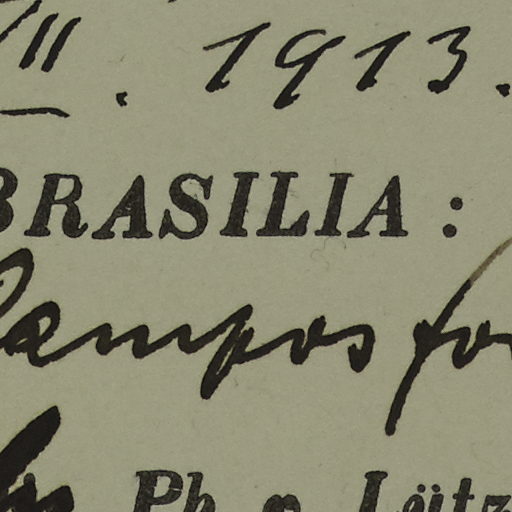 VII. 1913.
BRASILIA:
Campos
Ph. v. Lütz